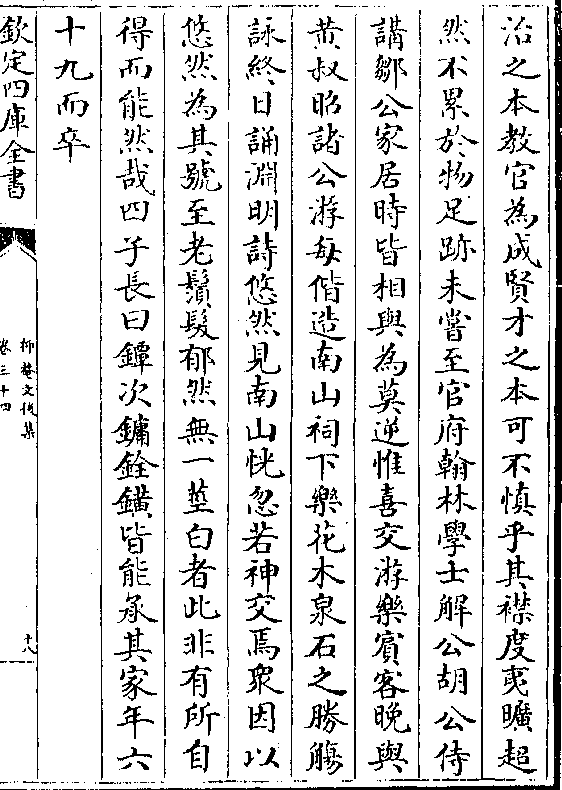 治之本教官為成賢才之本可不慎乎其襟度夷曠超
然不累於物足跡未嘗至官府翰林學士解公胡公侍
講鄒公家居時皆相與為莫逆惟喜交游樂賓客晚與
黄叔昭諸公游每偕造南山祠下樂花木泉石之勝觴
詠終日誦淵明詩悠然見南山恍忽若神交焉衆因以
悠然為其號至老鬚髮郁然無一莖白者此非有所自
得而能然哉四子長曰鐔次鏞銓鐄皆能承其家年六
十九而卒
欽定四庫全書
抑菴文後集
卷三十四
十八